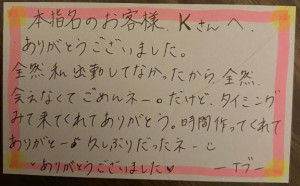 本指名のお客様、Kさんへ.
ありがとうございました。
全然私出勤してなかったから全然.
会えなくてごめんネー。だけど、タイミング
みて来てくれてありがとう。時間作ってくれて
ありがと〜♪久しぶりだったネー
ありがとうございました♥